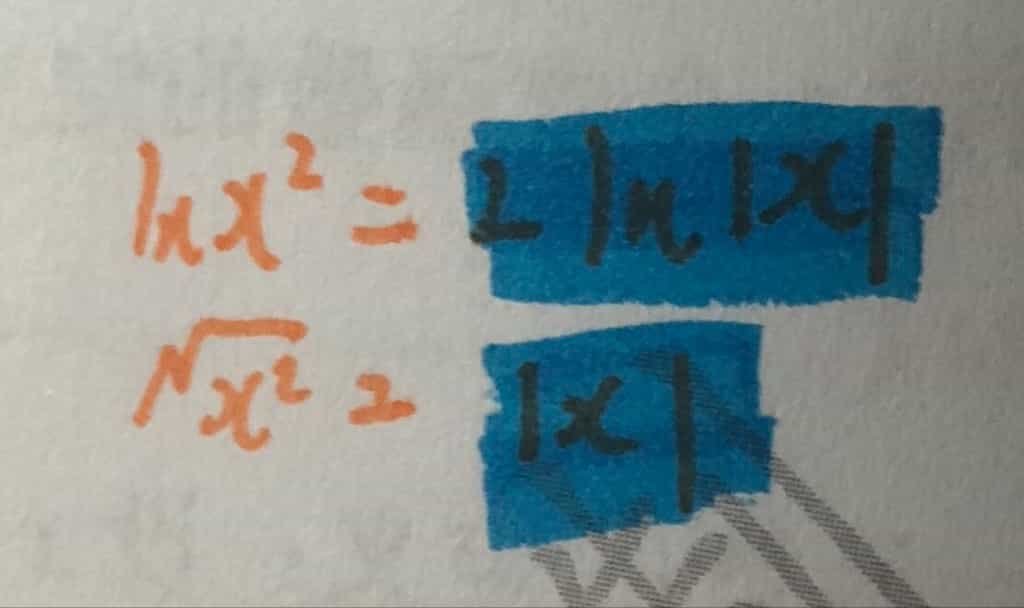 ln x² = 2 ln |x|
√x² = |x|